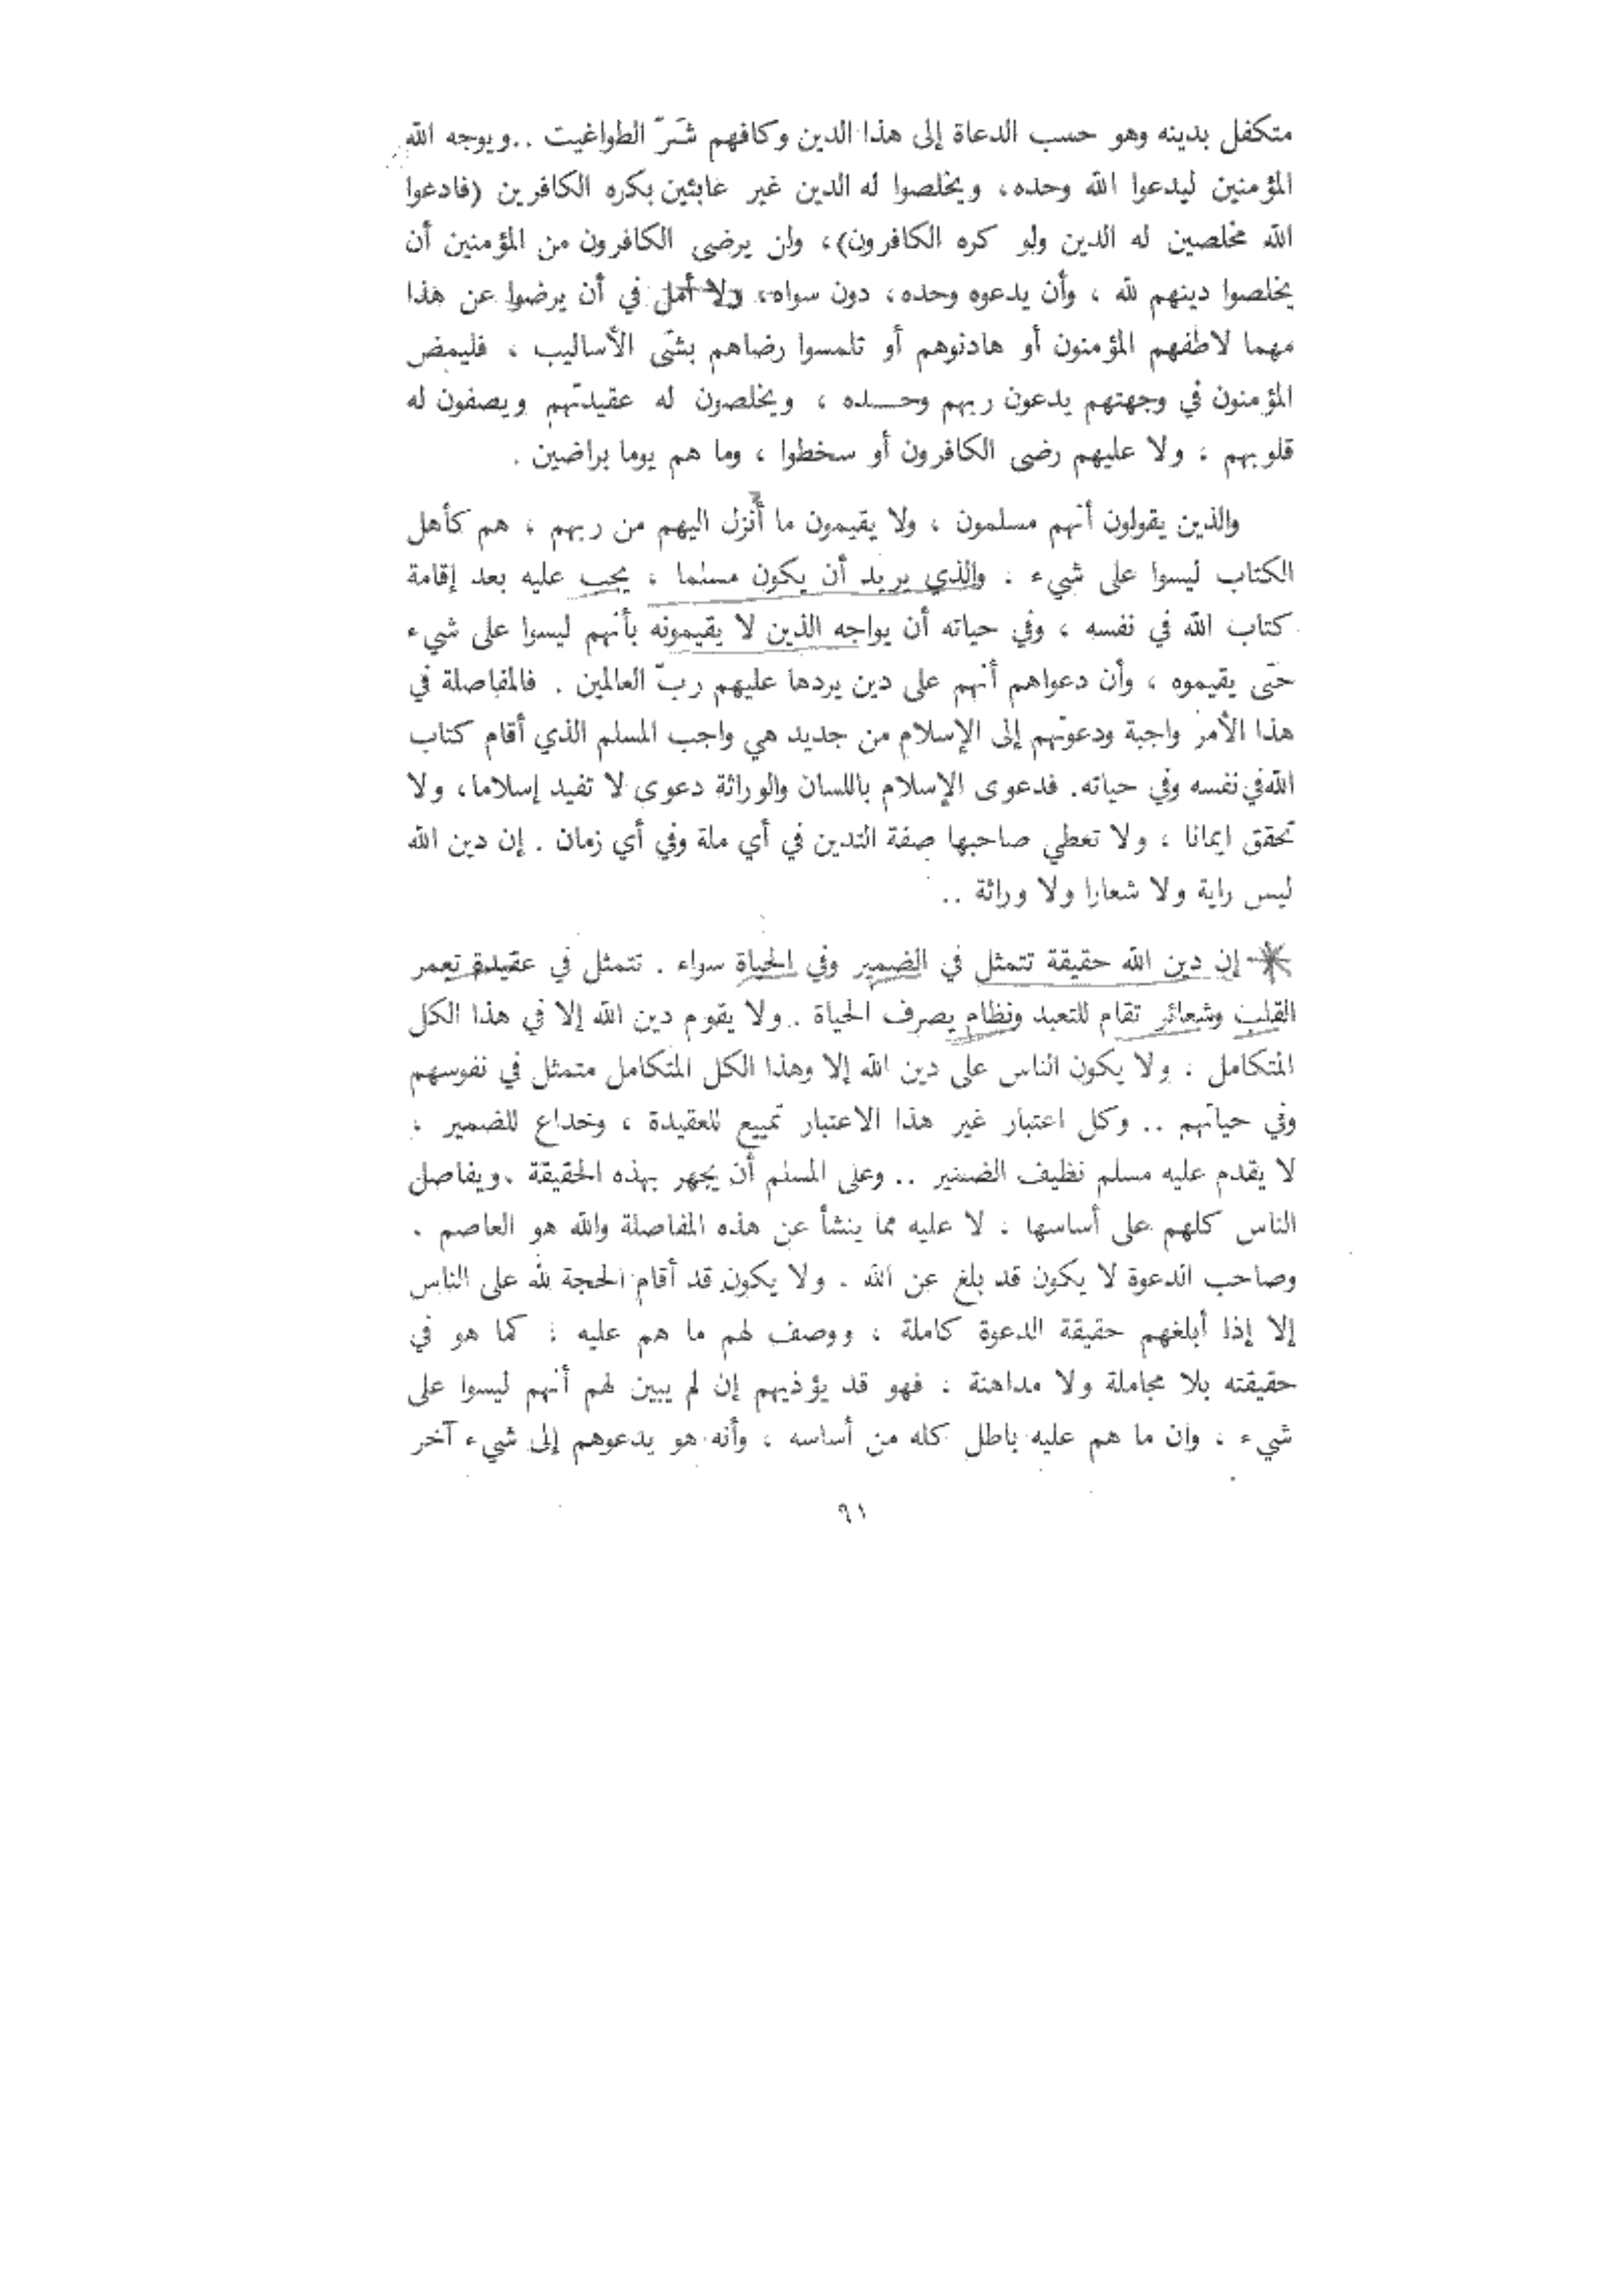 متكفل بدينه وهو حسب الدعاة إلى هذا الدين وكافهم شَرّ الطواغيت ..ويوجه الله
المؤمنين ليدعوا الله وحده، ويخلصوا له الدين غير عابئين بكره الكافرين (فادعوا
الله مخلصين له الدين ولو كره الكافرون)، ولن يرضى الكافرون من المؤمنين أن
يخلصوا دينهم لله ، وأن يدعوه وحده، دون سواه، ولا أمل في أن يرضوا عن هذا
مهما لاطفهم المؤمنون أو هادنوهم أو تلمسوا رضاهم بشتّى الأساليب ، فليمض
المؤمنون في وجهتهم يدعون ربهم وحـــده ، ويخلصون له عقيدتهم ويصفون له
قلوبهم ، ولا عليهم رضى الكافرون أو سخطوا ، وما هم يوما براضين .
والذين يقولون أنهم مسلمون ، ولا يقيمون ما أُنزل اليهم من ربهم ، هم كأهل
الكتاب ليسوا على شيء . والذي يريد أن يكون مسلما ، يجب عليه بعد إقامة
كتاب الله في نفسه ، وفي حياته أن يواجه الذين لا يقيمونه بأنهم ليسوا على شيء
حتّى يقيموه ، وأن دعواهم أنهم على دين يردها عليهم ربّ العالمين . فالمفاصلة في
هذا الأمر واجبة ودعوتهم إلى الإسلام من جديد هي واجب المسلم الذي أقام كتاب
الله في نفسه وفي حياته. فدعوى الإسلام باللسان والوراثة دعوى لا تفيد إسلاما، ولا
تحقق ايمانا ، ولا تعطي صاحبها صفة التدين في أي ملة وفي أي زمان . إن دين الله
ليس راية ولا شعارا ولا وراثة ..
إن دين الله حقيقة تتمثل في الضمير وفي الحياة سواء . تتمثل في عقيدة تعمر
القلب وشعائر تقام للتعبد ونظام يصرف الحياة . ولا يقوم دين الله إلا في هذا الكل
المتكامل ، ولا يكون الناس على دين الله إلا وهذا الكل المتكامل متمثل في نفوسهم
وفي حياتهم .. وكل اعتبار غير هذا الاعتبار تمييع للعقيدة ، وخداع للضمير ،
لا يقدم عليه مسلم نظيف الضمير .. وعلى المسلم أن يجهر بهذه الحقيقة .ويفاصل
الناس كلهم على أساسها . لا عليه مما ينشأ عن هذه المفاصلة والله هو العاصم .
وصاحب الدعوة لا يكون قد بلغ عن الله . ولا يكون قد أقام الحجة لله على الناس
إلا إذا أبلغهم حقيقة الدعوة كاملة ، ووصف لهم ما هم عليه ، كما هو في
حقيقته بلا مجاملة ولا مداهنة . فهو قد يؤذيهم إن لم يبين لهم أنهم ليسوا على
شيء ، وان ما هم عليه باطل كله من أساسه ، وأنه هو يدعوهم إلى شيء آخر
٩١